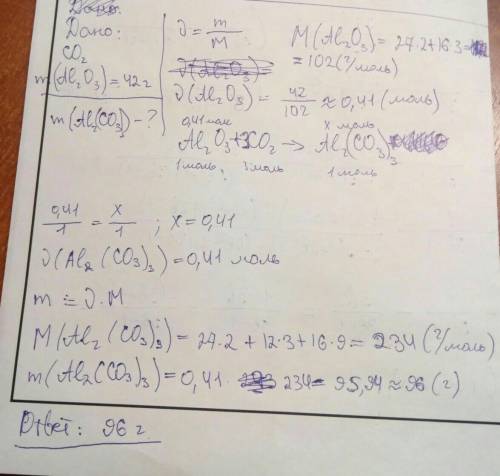 Дано:
CO₂
m(Al₂O₃) = 42 г
m(Al₂(CO₃)₃) - ?
ν = m/M
M(Al₂O₃) = 27·2+16·3=
= 102 (г/моль)
ν(Al₂O₃) = 42/102 ≈ 0,41 (моль)
0,41 моль x моль
Al₂O₃ + 3CO₂ → Al₂(CO₃)₃
1 моль 3 моль 1 моль
0,41/1 = x/1 ; x = 0,41
ν(Al₂(CO₃)₃) = 0,41 моль
m = ν·M
M(Al₂(CO₃)₃) = 27·2 + 12·3 + 16·9 = 234 (г/моль)
m(Al₂(CO₃)₃) = 0,41 · 234 = 95,94 ≈ 96 (г)
Ответ: 96 г.